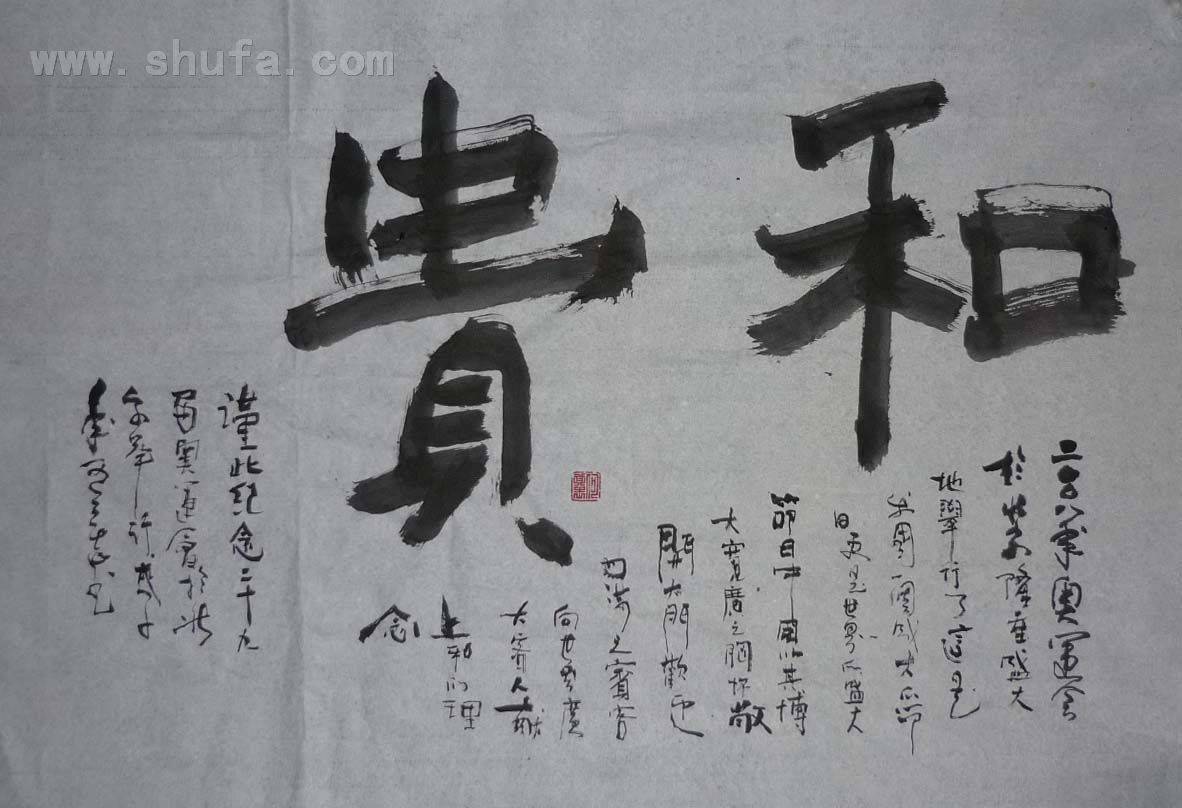 www.shufa.com
和貴
二〇〇八年奧運会
於北京隆重盛大
地舉行了這是
我國一國盛大之節
日更是世界之盛大
節日中國以其博
大寬廣之胸懷敞
開大門歡迎
四海之賓客
向世界廣
大客人獻
上和的理
念
謹此紀念二十九
屆奧運會於北
京舉行